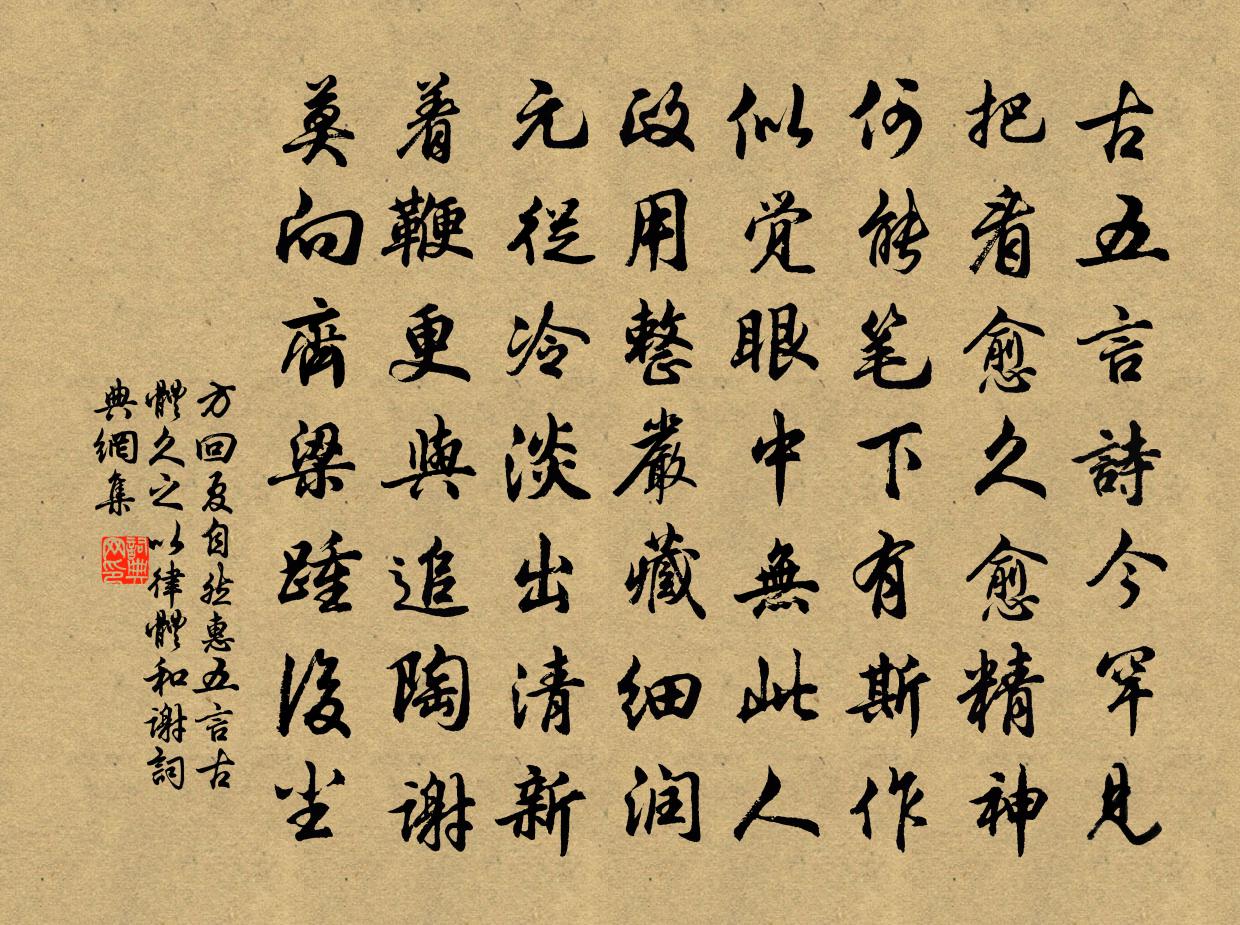 古五言詩今罕見
把看愈久愈精神
何能笔下有斯作
似覚眼中無此人
政用整嚴藏细润
元從冷淡出清新
着鞭更與追陶谢
莫向齊梁踵後尘
方回夏自然惠五言古
體久之以律體和谢詞
典網集
詞典网印